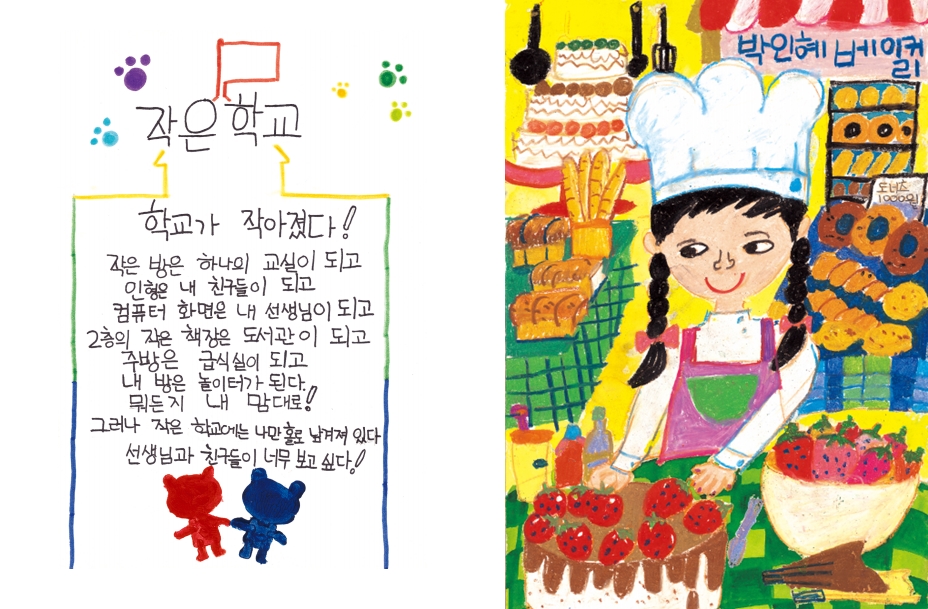 작은 학교
학교가 작아졌다!
작은 방은 하나의 교실이 되고
인형은 내 친구들이 되고
컴퓨터 화면은 내 선생님이 되고
2층의 작은 책장은 도서관이 되고
주방은 급식실이 되고
내 방은 놀이터가 된다.
뭐든지 내 맘대로!
그러나 작은 학교에는 나만 홀로 남겨져 있다
선생님과 친구들이 너무 보고 싶다!
박인혜 베이컬리
도너츠
1000원